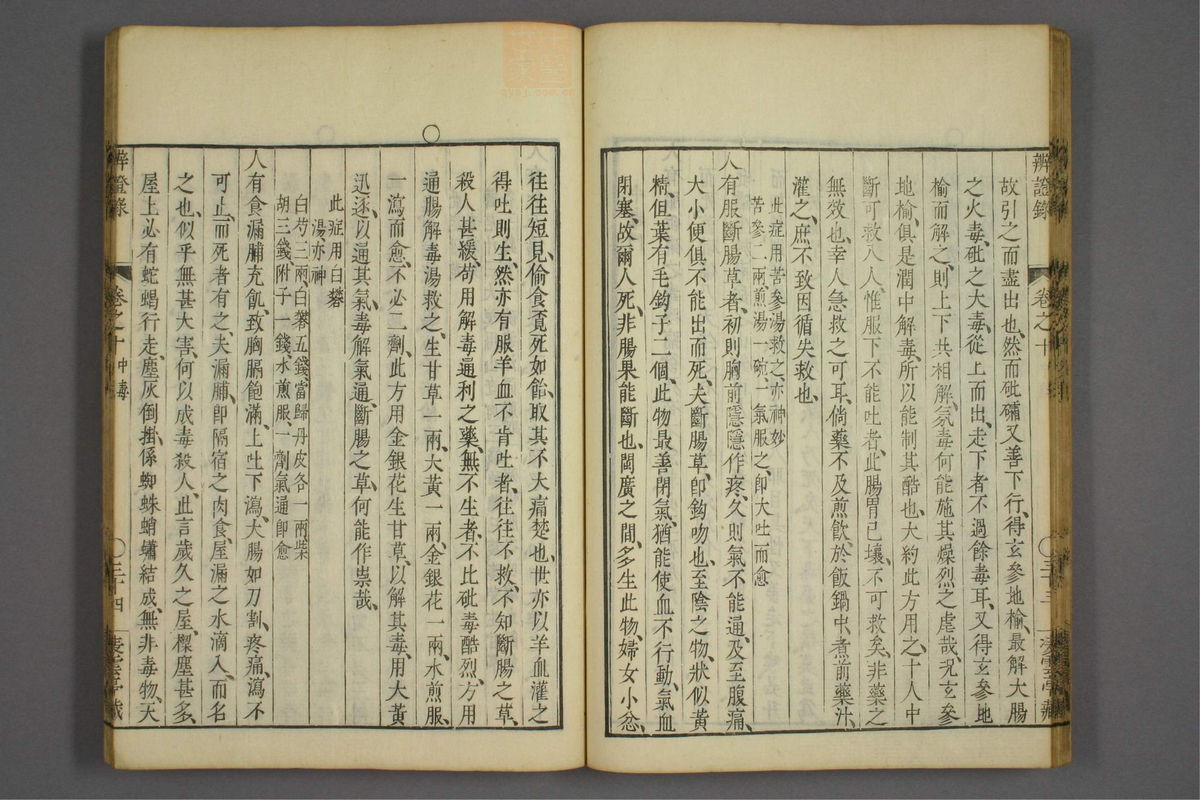 辨證錄
卷之十
三十三
故引之而盡出也、然而砒礵又善下行、得玄參地榆、最解大腸
之火毒、砒之大毒、從上而出、走下者不過餘毒耳、又得玄參地
榆而解之、則上下共相解氛、毒何能施其燥烈之虐哉、况玄參
地榆、俱是潤中解毒、所以能制其酷也、大約此方用之、十人中
斷可救八人、惟服下不能吐者、此腸胃已壞、不可救矣、非藥之
無效也、幸人急救之可耳、倘藥不及煎、飲於飯鍋中、煮前藥汁
灌之、庶不致因循失救也、
此症用苦參湯救之亦神妙
苦參二兩煎湯一碗、一氣服之、卽大吐而愈
人有服斷腸草者、初則胸前隱隱作疼、久則氣不能通、及至腹痛、
大小便俱不能出而死、夫斷腸草、卽鈎吻也、至陰之物、狀似黃
精、但葉有毛鈎子二個、此物最善閉氣、猶能使血不行動、氣血
閉塞、故爾人死、非腸果能斷也、閩廣之間、多生此物、婦女小忿、
往往短見、偷食覔死如飴、取其不大痛楚也、世亦以羊血灌之
得吐則生、然亦有服羊血不肯吐者、往往不救、不知斷腸之草、
殺人甚緩、苟用解毒通利之藥、無不生者、不比砒毒酷烈、方用
通腸解毒湯救之、生甘草一兩、大黃一兩、金銀花一兩、水煎服、
一瀉而愈、不必二劑、此方用金銀花生甘草、以解其毒、用大黃
迅逐、以通其氣、毒解氣通、斷腸之草何能作祟哉、
此症用白蘞
湯亦神
白芍三兩、白蘞五錢、當歸丹皮各一兩、柴
胡三錢、附子一錢、水煎服、一劑氣通卽愈
人有食漏脯充飢、致胸膈飽滿、上吐下瀉、大腸如刀割、疼痛、瀉不
可止、而死者有之、夫漏脯、卽隔宿之肉食、屋漏之水滴入、而名
之也、似乎無甚大害、何以成毒殺人、此言歲久之屋、樑塵甚多、
屋上必有蛇蝎行走、塵灰倒掛、係蜘蛛蛸蠨結成、無非毒物、天
辨證錄
卷之十
中毒
三十四